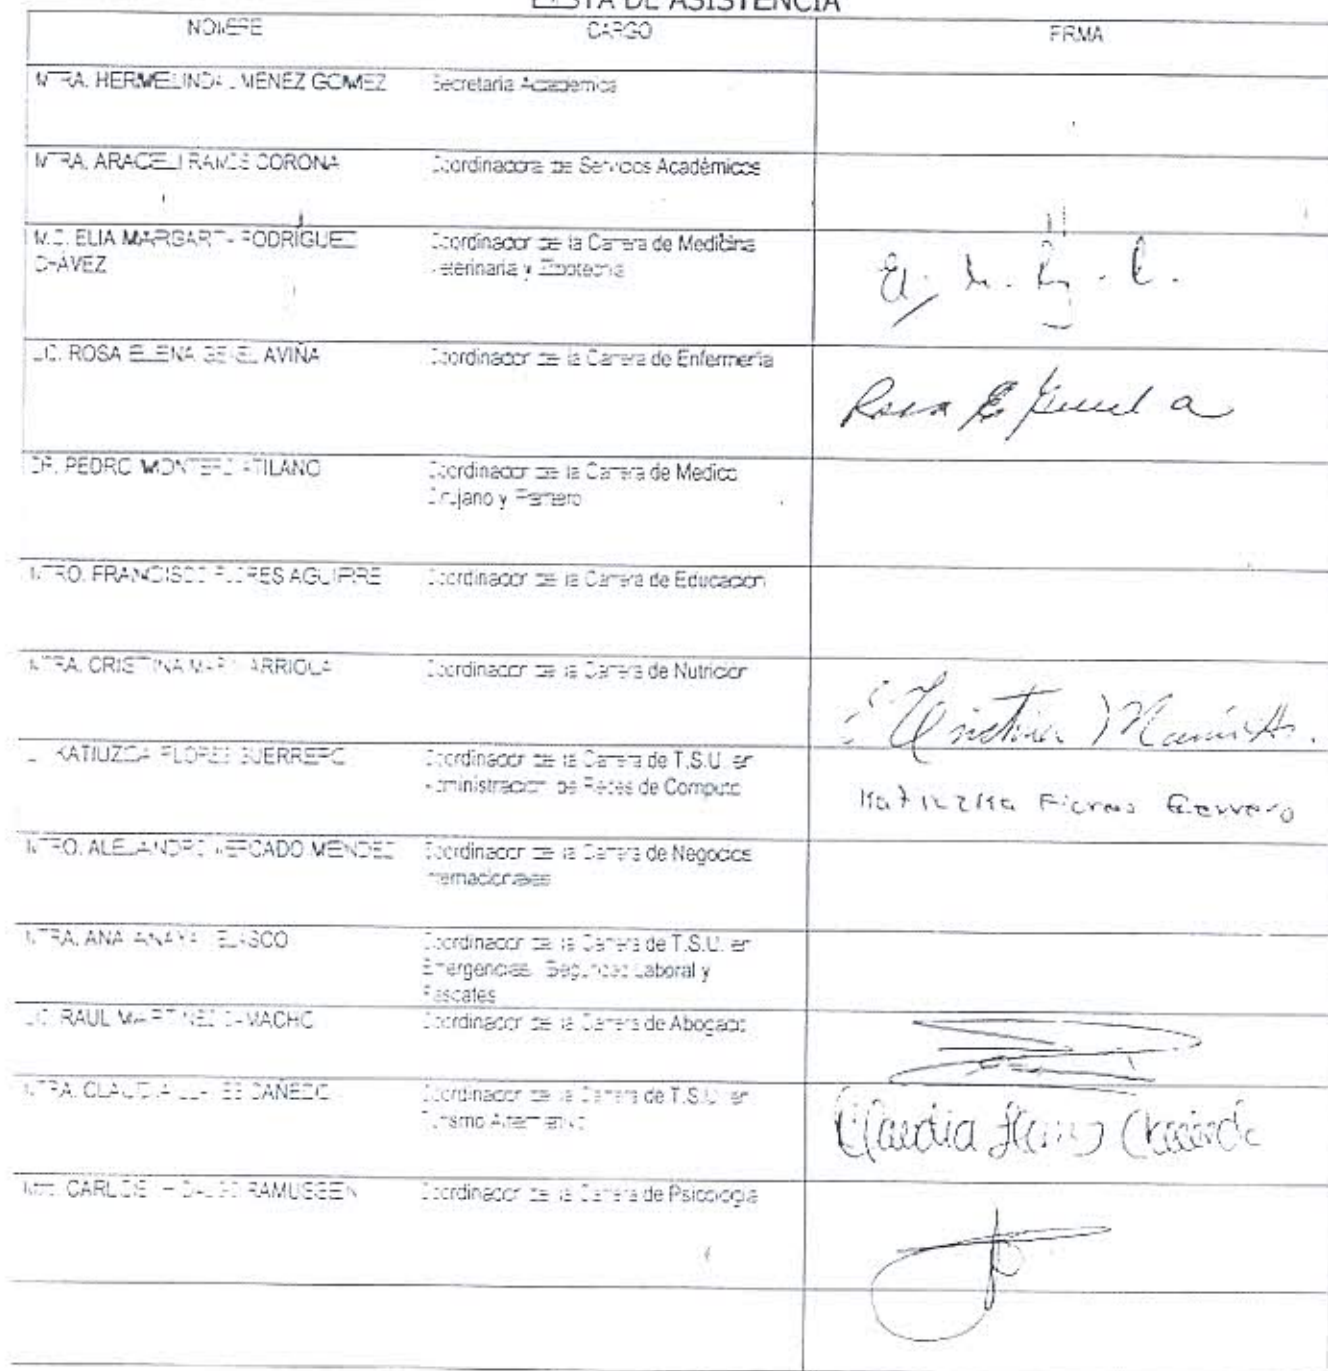 LISTA DE ASISTENCIA
NOMBRE CARGO FIRMA
MTRA. HERMELINDA JIMÉNEZ GÓMEZ Secretaria Academica
MTRA. ARACELI RAMOS CORONA Coordinadora de Servicios Académicos
M.C. ELIA MARGARITA RODRÍGUEZ Coordinador de la Carrera de Medicina
CHÁVEZ Veterinaria y Zootecnia
LIC. ROSA ELENA AVIÑA Coordinador de la Carrera de Enfermería
Rosa E a
DR. PEDRO MONTERO ATILANO Coordinador de la Carrera de Medico
Cirujano y Partero
MTRO. FRANCISCO FLORES AGUIRRE Coordinador de la Carrera de Educacion
MTRA. CRISTINA MARIN ARRIOLA Coordinador de la Carrera de Nutricion
Cristina Marin A.
KATIUZCA FLORES GUERRERO Coordinador de la Carrera de T.S.U. en
Administracion de Redes de Computo
Katiuzka Flores Guerrero
MTRO. ALEJANDRO MERCADO MÉNDEZ Coordinador de la Carrera de Negocios
Internacionales
MTRA. ANA ANAYA VELASCO Coordinador de la Carrera de T.S.U. en
Emergencias, Seguridad Laboral y
Rescates
LIC. RAUL MARTINEZ CAMACHO Coordinador de la Carrera de Abogado
MTRA. CLAUDIA LLANES CAÑEDO Coordinador de la Carrera de T.S.U. en
Turismo Alternativo
Claudia Llanes Cañedo
CARLOS HIDALGO RAMUSSEN Coordinador de la Carrera de Psicologia